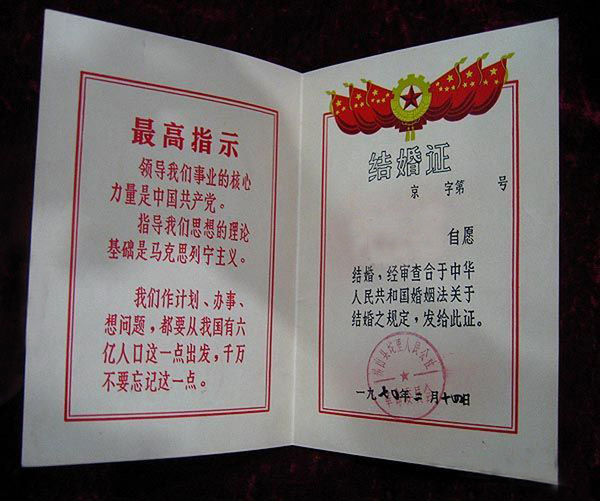 最高指示
领导我们事业的核心
力量是中国共产党。
指导我们思想的理论
基础是马克思列宁主义。
我们作计划、办事、
想问题，都要从我国有六
亿人口这一点出发，千万
不要忘记这一点。
结婚证
京 字第 号
自愿
结婚，经审查合于中华
人民共和国婚姻法关于
结婚之规定，发给此证。
人民公社
一九七〇年二月十四日